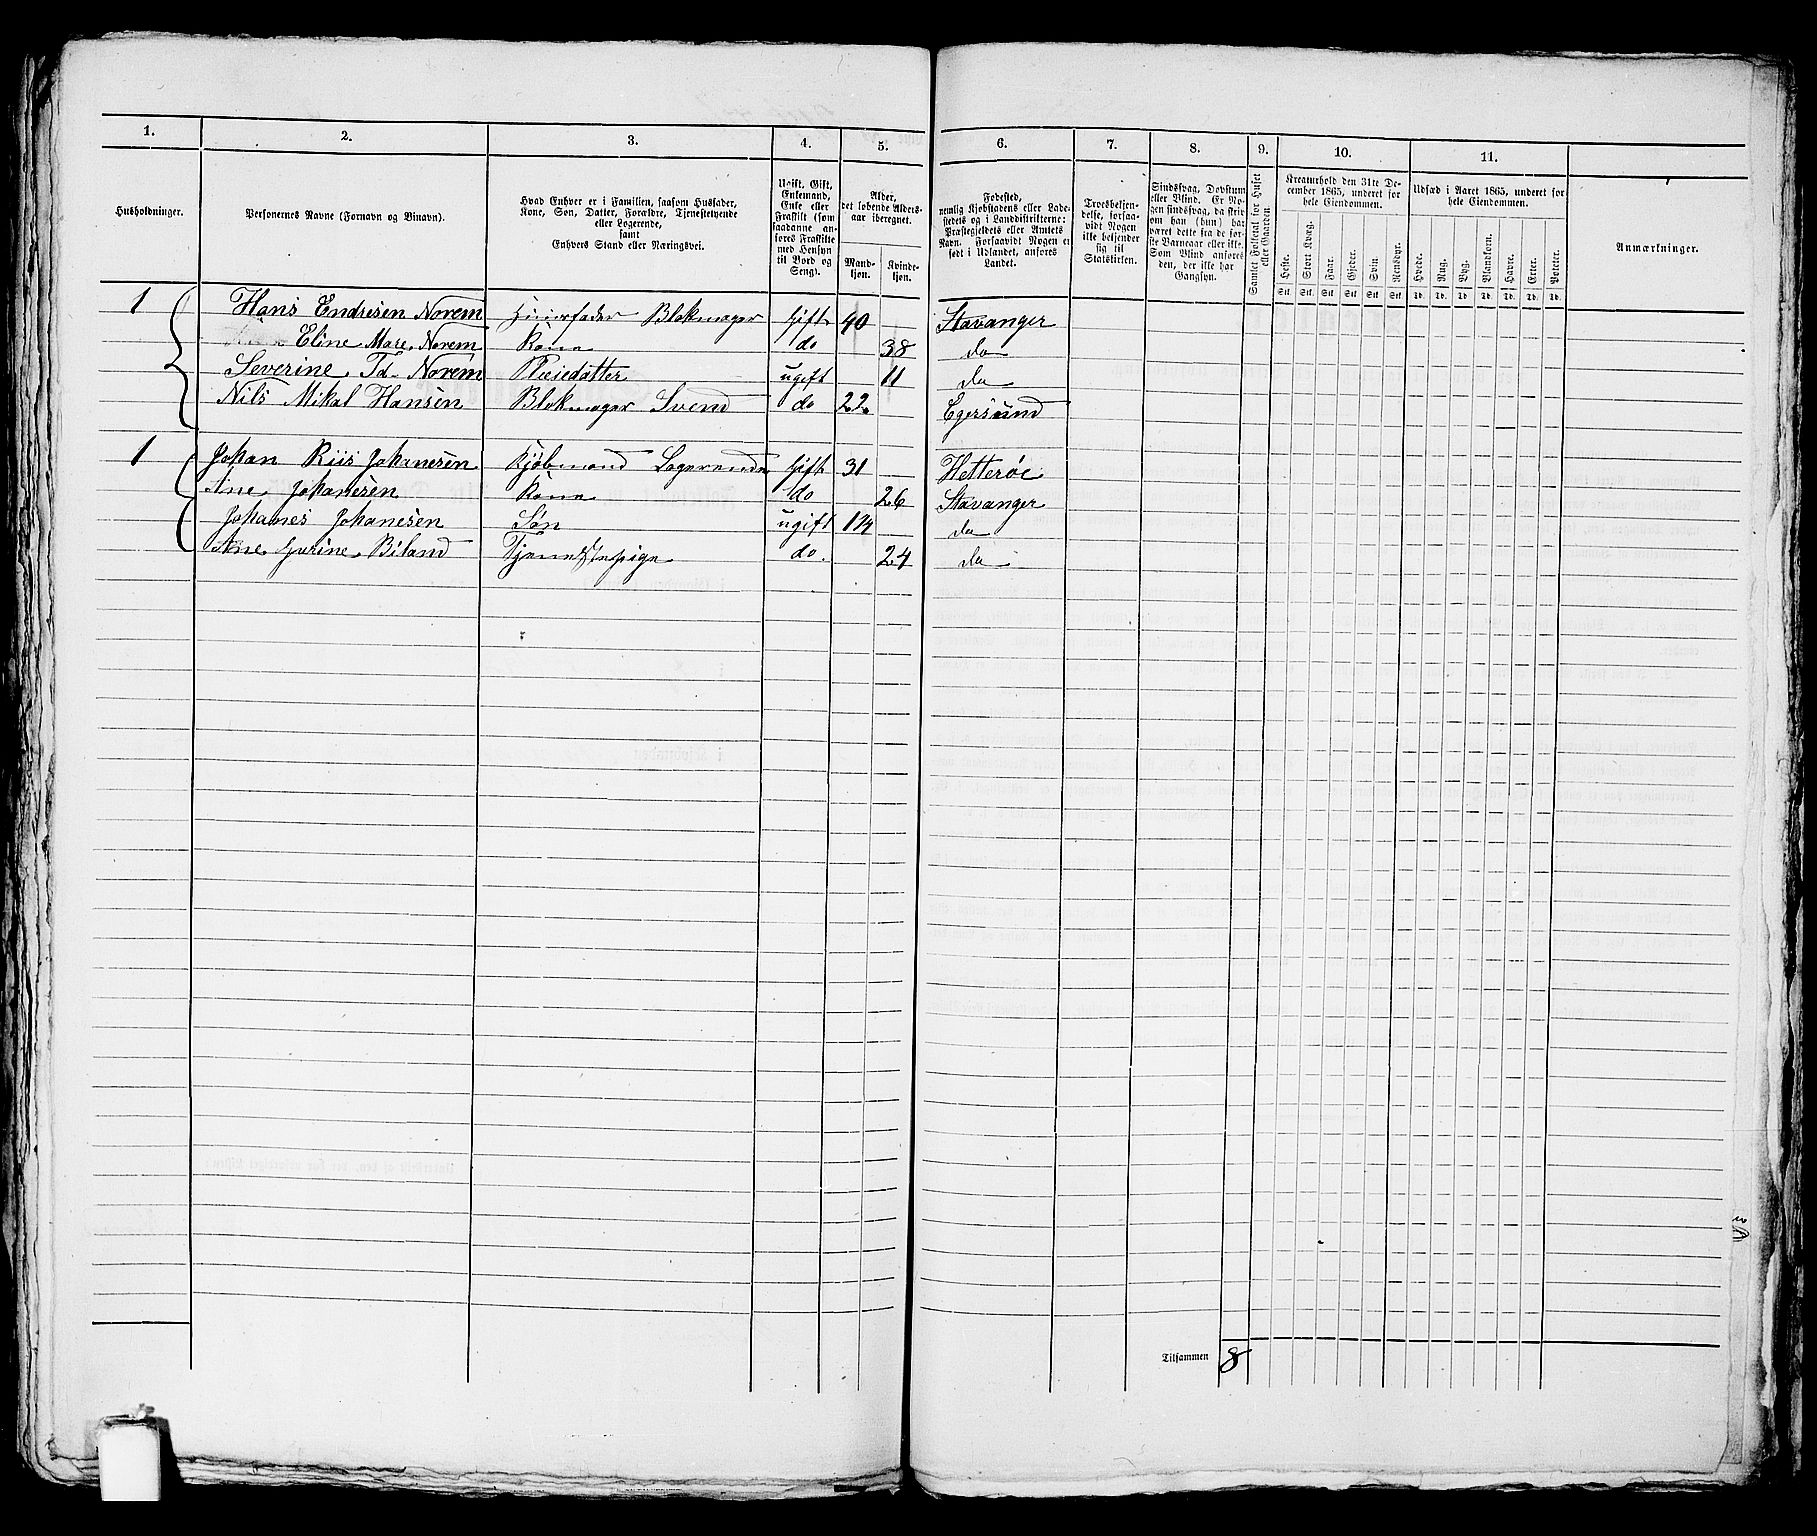 1. 2. 3. 4. 5. 6. 7. 8. 9. 10. 11.
Husholdninger.
Personernes Navne (Fornavn og Binavn).
Hvad Enhver er i Familien, saasom Husfader,
Kone, Søn, Datter, Forældre, Tjenestetyende
eller Logerende,
samt
Enhvers Stand eller Næringsvei.
Ugift, Gift,
Enkemand,
Enke eller
Fraskilt (som
saadanne an-
føres Fraskilte
med Hensyn
til Bord og
Seng).
Alder,
det løbende Alders-
aar iberegnet.
Mand-
kjøn.
Kvinde-
kjøn.
Fødested,
nemlig Kjøbstadens eller Lade-
stedets og i Landdistrikterne:
Præstegjeldets eller Amtets
Navn. Forsaavidt Nogen er
født i Udlandet, anføres
Landet.
Troesbekjen-
delse, forsaa-
vidt Nogen
ikke bekjender
sig til
Statskirken.
Sindssvag, Døvstum
eller Blind. Er No-
gen sindssvag, da skriv
om han (hun) har
været dette fra de før-
ste Barneaar eller ikke.
Som Blind anføres
den, der ikke har
Gangsyn.
Samlet Folketal for Huset
eller Gaarden
Kreaturhold den 31te De-
cember 1865, underet for
hele Eiendommen.
Heste. Stort Kvæg. Faar. Gjeder. Svin. Rensdyr.
Stk. Stk. Stk. Stk. Stk. Stk.
Udsæd i Aaret 1865, underet for
hele Eiendommen.
Hvede. Rug. Byg. Blandkorn. Havre. Erter. Poteter.
Td. Td. Td. Td. Td. Td. Td.
Anmærkninger.
1 Hans Endresen Norem Huusfader Blokmager Gift 40 Stavanger
Eline Mare. Norem Kone do 38 do
Severine Td. Norem Pleiedatter ugift 11 do
Nils Mikal Hansen Blokmager Svend do 22 Egersund
1 Johan Riis Johanesen Kjøbmand Logerende Gift 31 Hetterøe
Ane Johanesen Kone do 26 Stavanger
Johanes Johanesen Søn ugift 1 1/4 do
Ane Gurine Biland Tjenestepige do. 24 do
Tilsammen 8